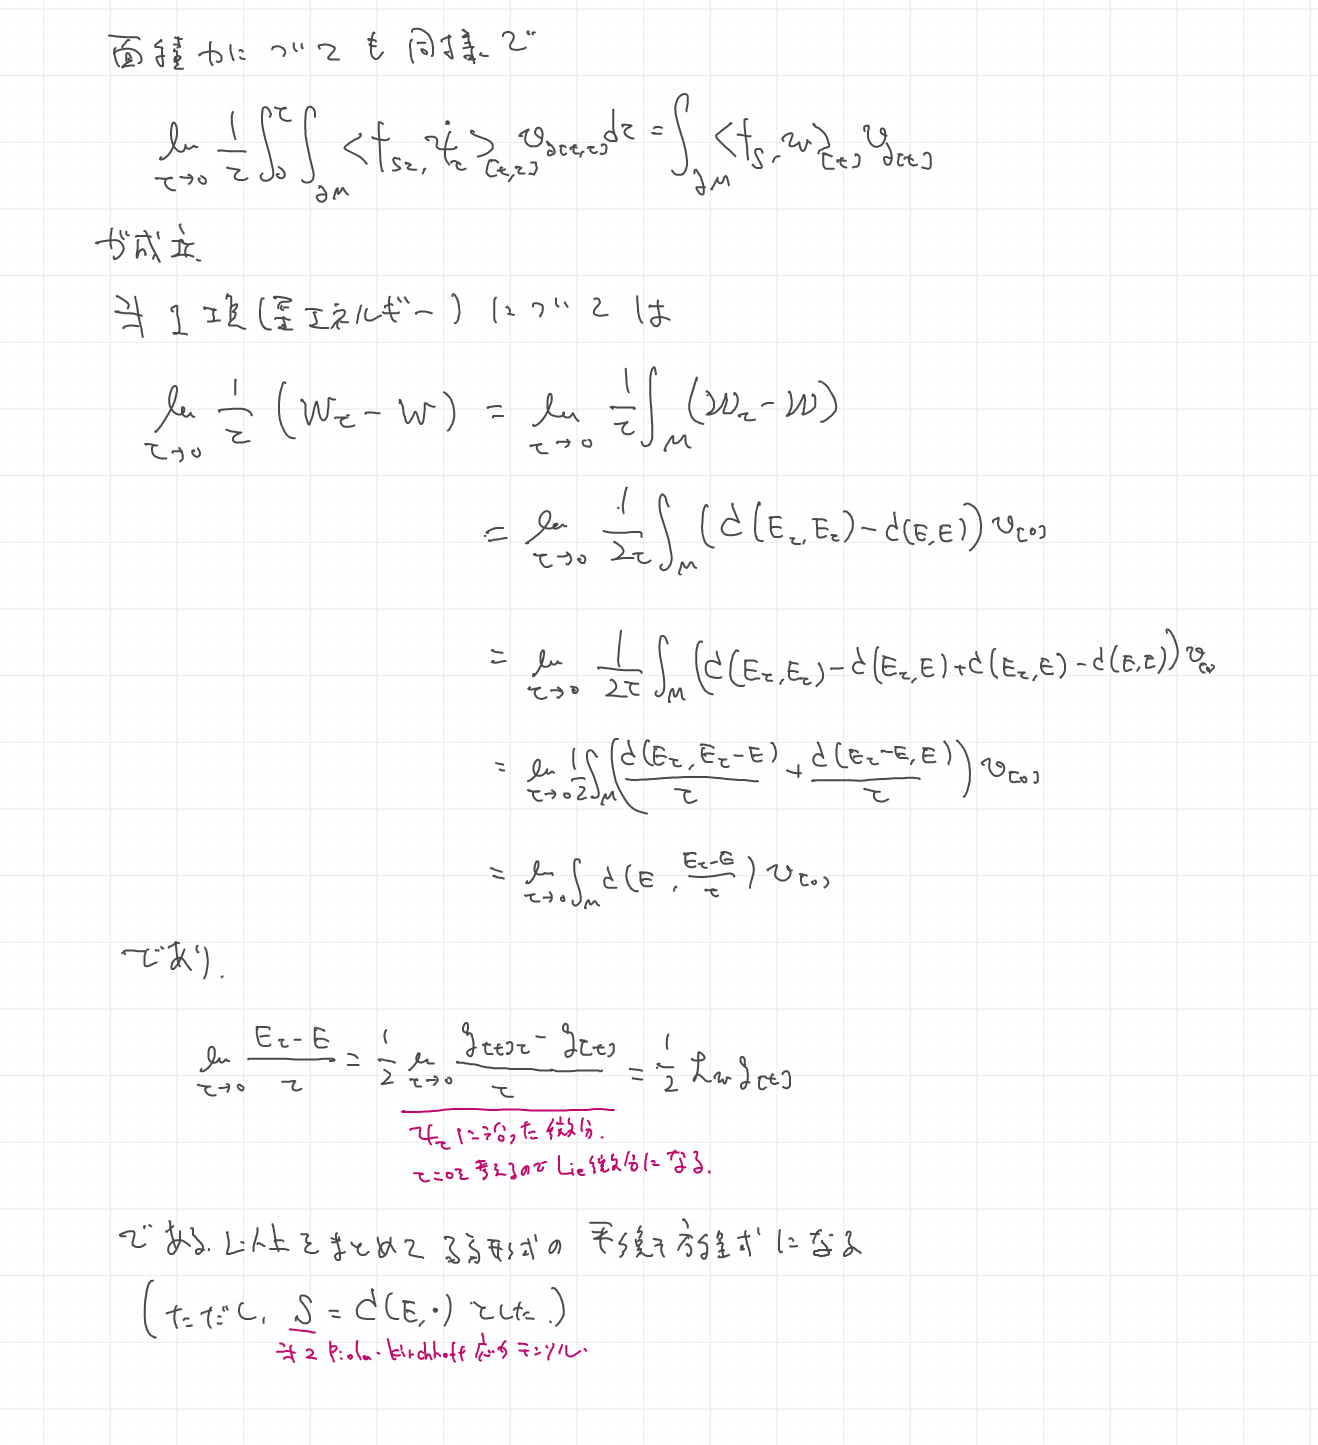 面積力についても同様で
lim_{τ→0} 1/τ ∫_0^τ ∫_{∂M} <f_{Sτ}, ψ̇_τ>_{[t,τ]} υ_{∂[t,τ]} dτ = ∫_{∂M} <f_S, w>_{[t]} υ_{∂[t]}
が成立.
第1項(歪エネルギー)については
lim_{τ→0} 1/τ (W_τ - W) = lim_{τ→0} 1/τ ∫_M (𝒲_τ - 𝒲)
= lim_{τ→0} 1/2τ ∫_M (C(E_τ, E_τ) - C(E, E)) υ_{[0]}
= lim_{τ→0} 1/2τ ∫_M (C(E_τ, E_τ) - C(E_τ, E) + C(E_τ, E) - C(E, E)) υ_{[0]}
= lim_{τ→0} 1/2 ∫_M (C(E_τ, E_τ-E)/τ + C(E_τ-E, E)/τ) υ_{[0]}
= lim_{τ→0} ∫_M C(E, (E_τ-E)/τ) υ_{[0]}
であり.
lim_{τ→0} (E_τ - E)/τ = 1/2 lim_{τ→0} (g_{[t]τ} - g_{[t]})/τ = 1/2 ℒ_w g_{[t]}
ψ_τ に沿った微分.
τ=0を考えるので Lie微分になる.
である. 以上をまとめて 弱形式の 平衡方程式になる
(ただし, S = C(E, ·) とした.)
第2 Piola-Kirchhoff 応力テンソル.